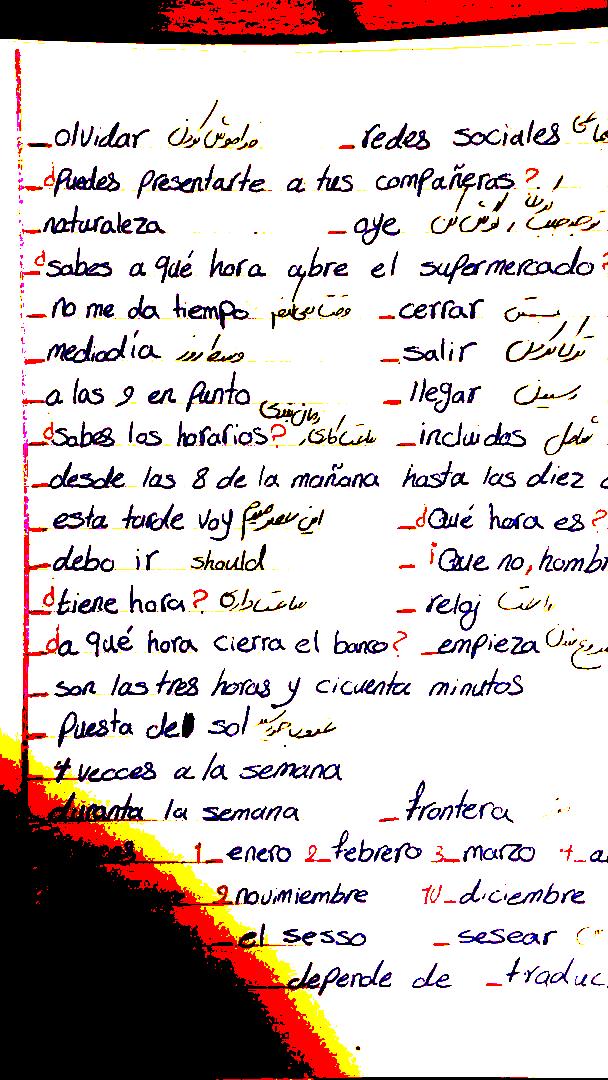 _ olvidar فراموش کردن _ redes sociales
_ ¿puedes presentarte a tus compañeras?
_ naturaleza _ oye
_ ¿sabes a qué hora abre el supermercado?
_ no me da tiempo _ cerrar بستن
_ mediodía وسط روز _ salir ترک کردن
_ a las 9 en punto _ llegar رسیدن
_ ¿sabes los horarios? _ incluidas شامل
_ desde las 8 de la mañana hasta las diez
_ esta tarde voy _ ¿Qué hora es?
_ debo ir should _ ¡Que no, hombr
_ ¿tiene hora? ساعت داری _ reloj ساعت
_ ¿a qué hora cierra el banco? _ empieza شروع شدن
_ son las tres horas y cicuenta minutos
_ puesta del sol غروب خورشید
_ 4 vecces a la semana
_ duranta la semana _ frontera
1_ enero 2_ febrero 3_ marzo 4_ a
9 noumiembre 10_ diciembre
_ el sesso _ sesear
_ depende de _ traduc